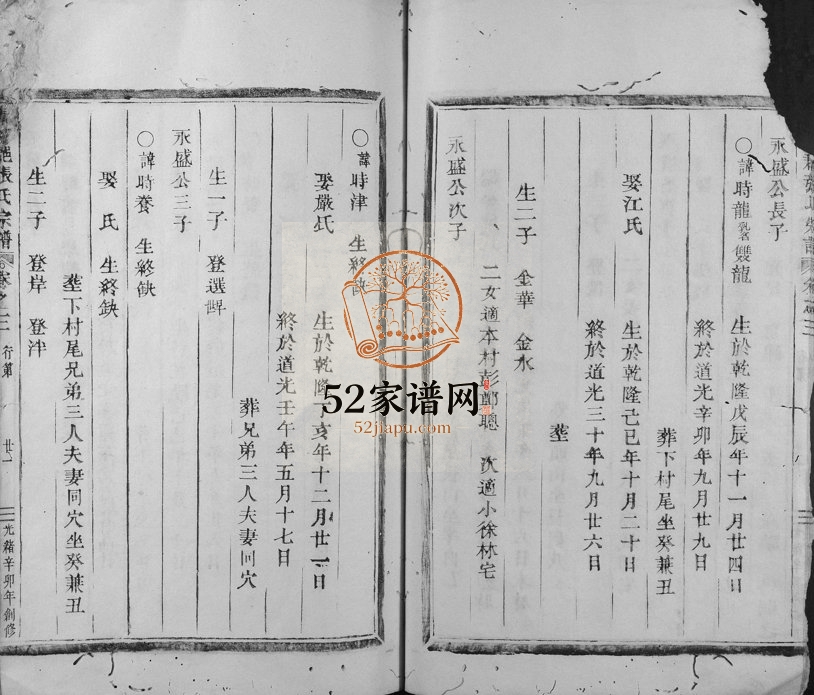 永盛公長子
○諱時龍乳名雙龍 生於乾隆戊辰年十一月廿四日
終於道光辛卯年九月廿九日
葬下村尾坐癸兼丑
娶江氏 生於乾隆己巳年十月二十日
終於道光三十年九月廿六日
塟
生二子 金華 金水
二女適本村彭鄭聰 次適小徐林宅
永盛公次子
○諱時津 生終缺
娶嚴氏 生於乾隆丁亥年十二月廿二日
終於道光壬午年五月十七日
葬兄弟三人夫妻同穴
生一子 登選
永盛公三子
○諱時養 生終缺
娶 氏 生終缺
塟下村尾兄弟三人夫妻同穴坐癸兼丑
生二子 登岸 登泮
張氏宗譜 行第 廿一 光緒辛卯年創修
52家谱网
52jiapu.com